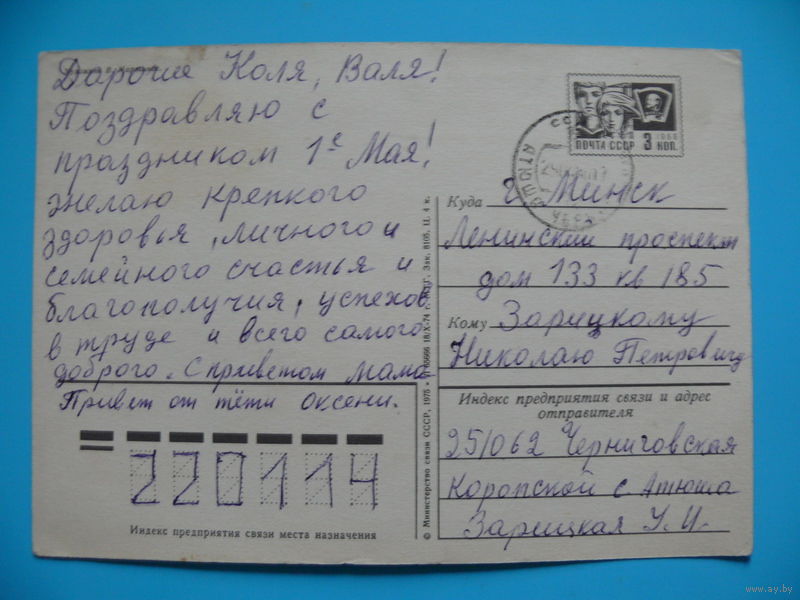 Дорогие Коля, Валя!
Поздравляю с
праздником 1е Мая!
желаю крепкого
здоровья, личного и
семейного счастья и
благополучия, успехов
в труде и всего самого
доброго. С приветом мама
Привет от тёти Оксени.
220114
Индекс предприятия связи места назначения
© Министерство связи СССР, 1975
ПОЧТА СССР 3 КОП.
1966
Куда г. Минск
Ленинский проспект
дом 133 кв 185
Кому Зарицкому
Николаю Петровичу
Индекс предприятия связи и адрес
отправителя
251062 Черниговская
Коропской с. Атюша
Зарицкая У. И.
www.ay.by